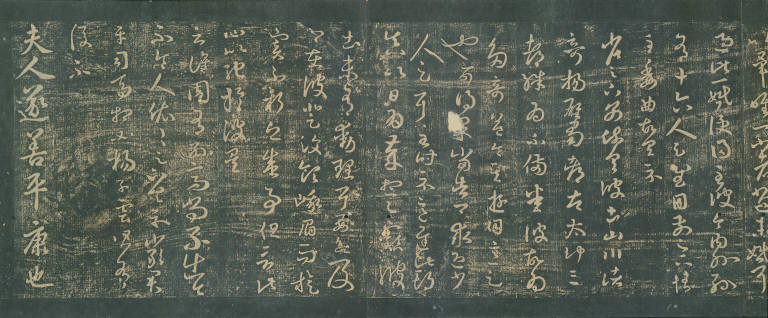 畢唯一小者尚未婚耳
過此一婚便得至彼今內外孫
有十六人足慰目前足下情
至委曲故具示
省足下別疏具彼土山川諸
奇揚雄蜀都左太沖三
都殊為不備悉彼故為
多奇益令其遊目意足
也可得果當告卿求迎少
人足耳至時示意遲此期
真以日為歲想足下鎮彼
土未有動理耳要欲及
卿在彼登汶領峨眉而旋
實不朽之盛事但言此
心以馳於彼矣
云譙周有孫高尚不出
不令人依依足下具示嚴君
平司馬相如揚子雲皆有
後不
夫人遂善平康也